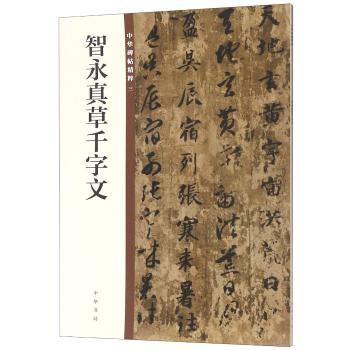 中华碑帖精粹
智永真草千字文
中华书局
天地玄黃宇宙洪荒日
天地玄黃宇宙洪荒日
盈昃辰宿列張寒來暑往
盈昃辰宿列張寒來暑